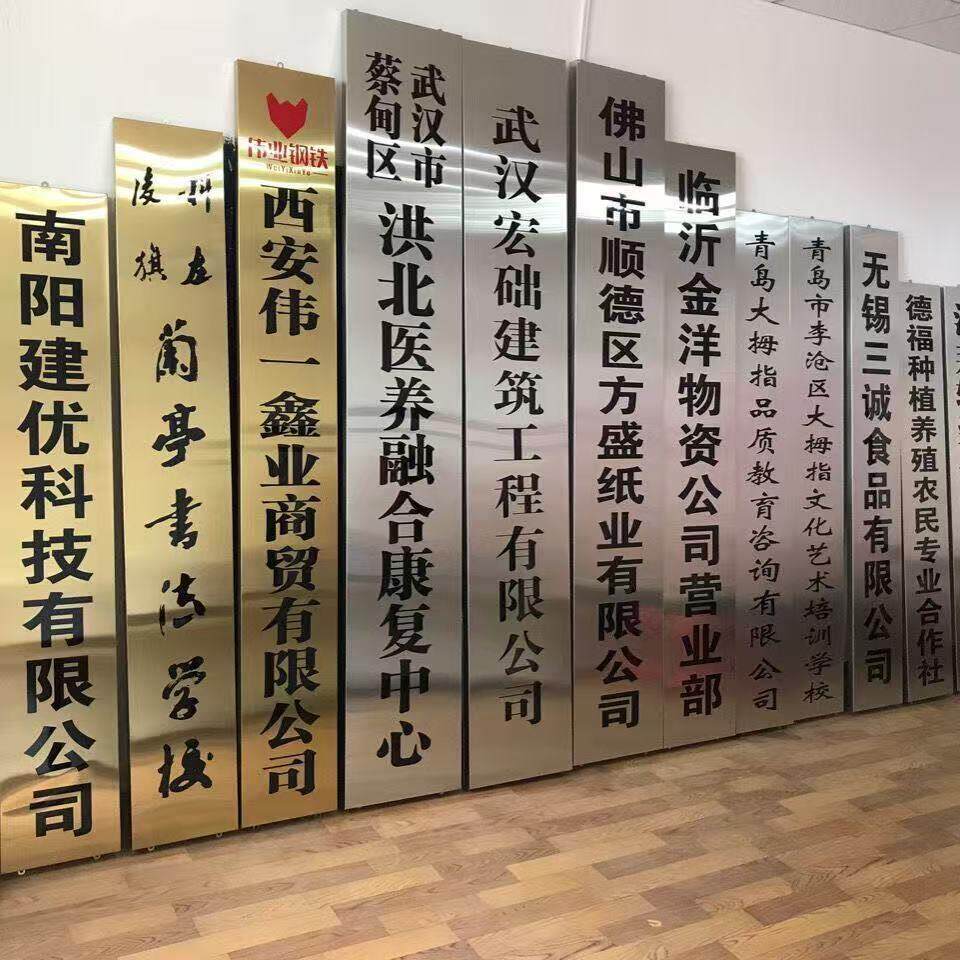 南阳建优科技有限公司
科左
後旗
蘭亭書法学校
伟业钢铁
WeiYiXinYe
西安伟一鑫业商贸有限公司
武汉市
蔡甸区
洪北医养融合康复中心
武汉宏础建筑工程有限公司
佛山市顺德区方盛纸业有限公司
临沂金洋物资公司营业部
青岛大拇指品质教育咨询有限公司
青岛市李沧区大拇指文化艺术培训学校
无锡三诚食品有限公司
德福种植养殖农民专业合作社